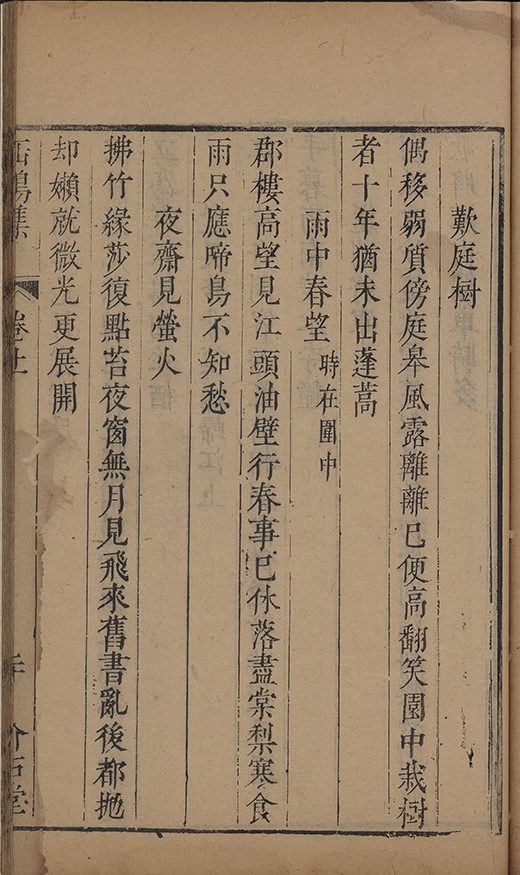 歎庭樹
偶移弱質傍庭皋風露離離已便高翻笑園中栽樹
者十年猶未出蓬蒿
雨中春望 時在圍中
郡樓高望見江頭油壁行春事已休落盡棠梨寒食
雨只應啼鳥不知愁
夜齋見螢火
拂竹緣莎復點苔夜窗無月見飛來舊書亂後都拋
却嬾就微光更展開
缶鳴集 卷十一 介石堂